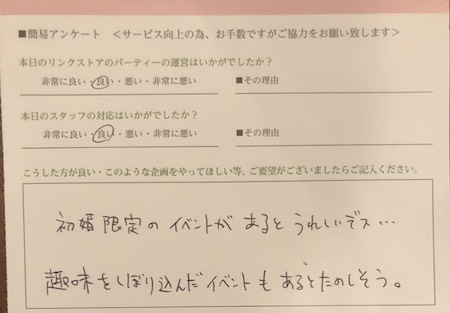 ■簡易アンケート <サービス向上の為、お手数ですがご協力をお願い致します>
本日のリンクストアのパーティーの運営はいかがでしたか?
非常に良い・良い・悪い・非常に悪い ■その理由
本日のスタッフの対応はいかがでしたか?
非常に良い・良い・悪い・非常に悪い ■その理由
こうした方が良い・このような企画をやってほしい等、ご要望がございましたらご記入ください。
初婚限定のイベントがあるとうれしいデス…
趣味をしぼり込んだイベントもあるとたのしそう。